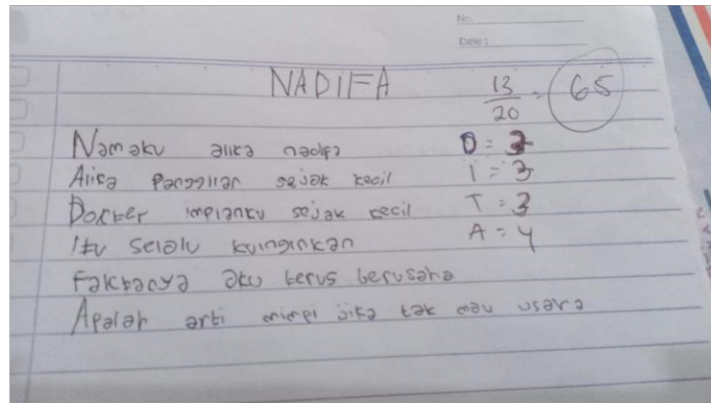 No.
Date:
NADIFA
13/20 = 65
Namaku alika nadifa
D = 3
Alika Panggilan sejak kecil
i = 3
Dokter impianku sejak kecil
T = 3
Itu selalu kuinginkan
A = 4
Faktanya aku terus berusaha
Apalah arti mimpi jika tak mau usaha